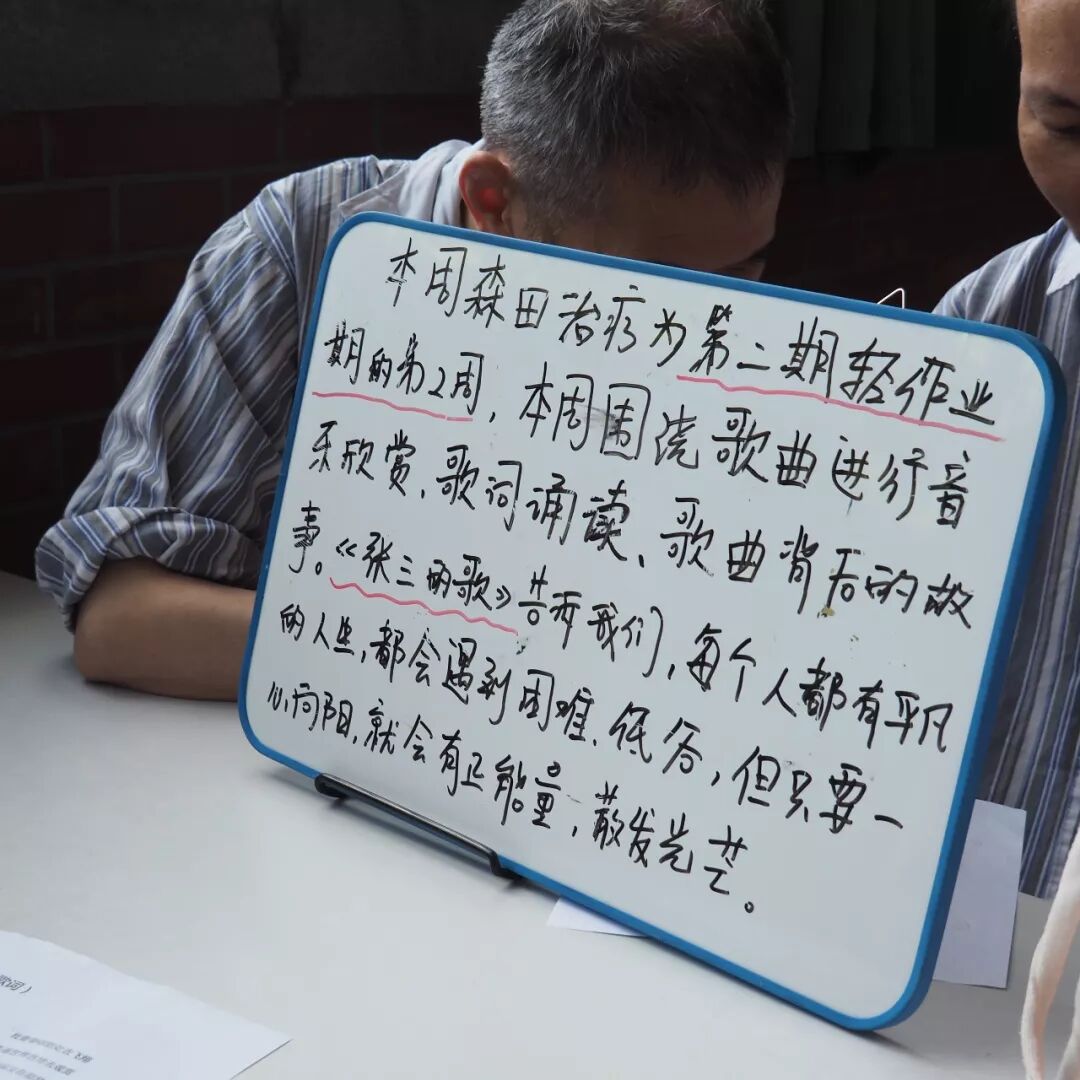 本周森田治疗为第二期轻作业
期的第2周，本周围绕歌曲进行音
乐欣赏、歌词诵读、歌曲背后的故
事。《张三的歌》告诉我们，每个人都有平凡
的人生，都会遇到困难、低谷，但只要一
心向阳，就会有正能量，散发光芒。
歌词）
飞翔